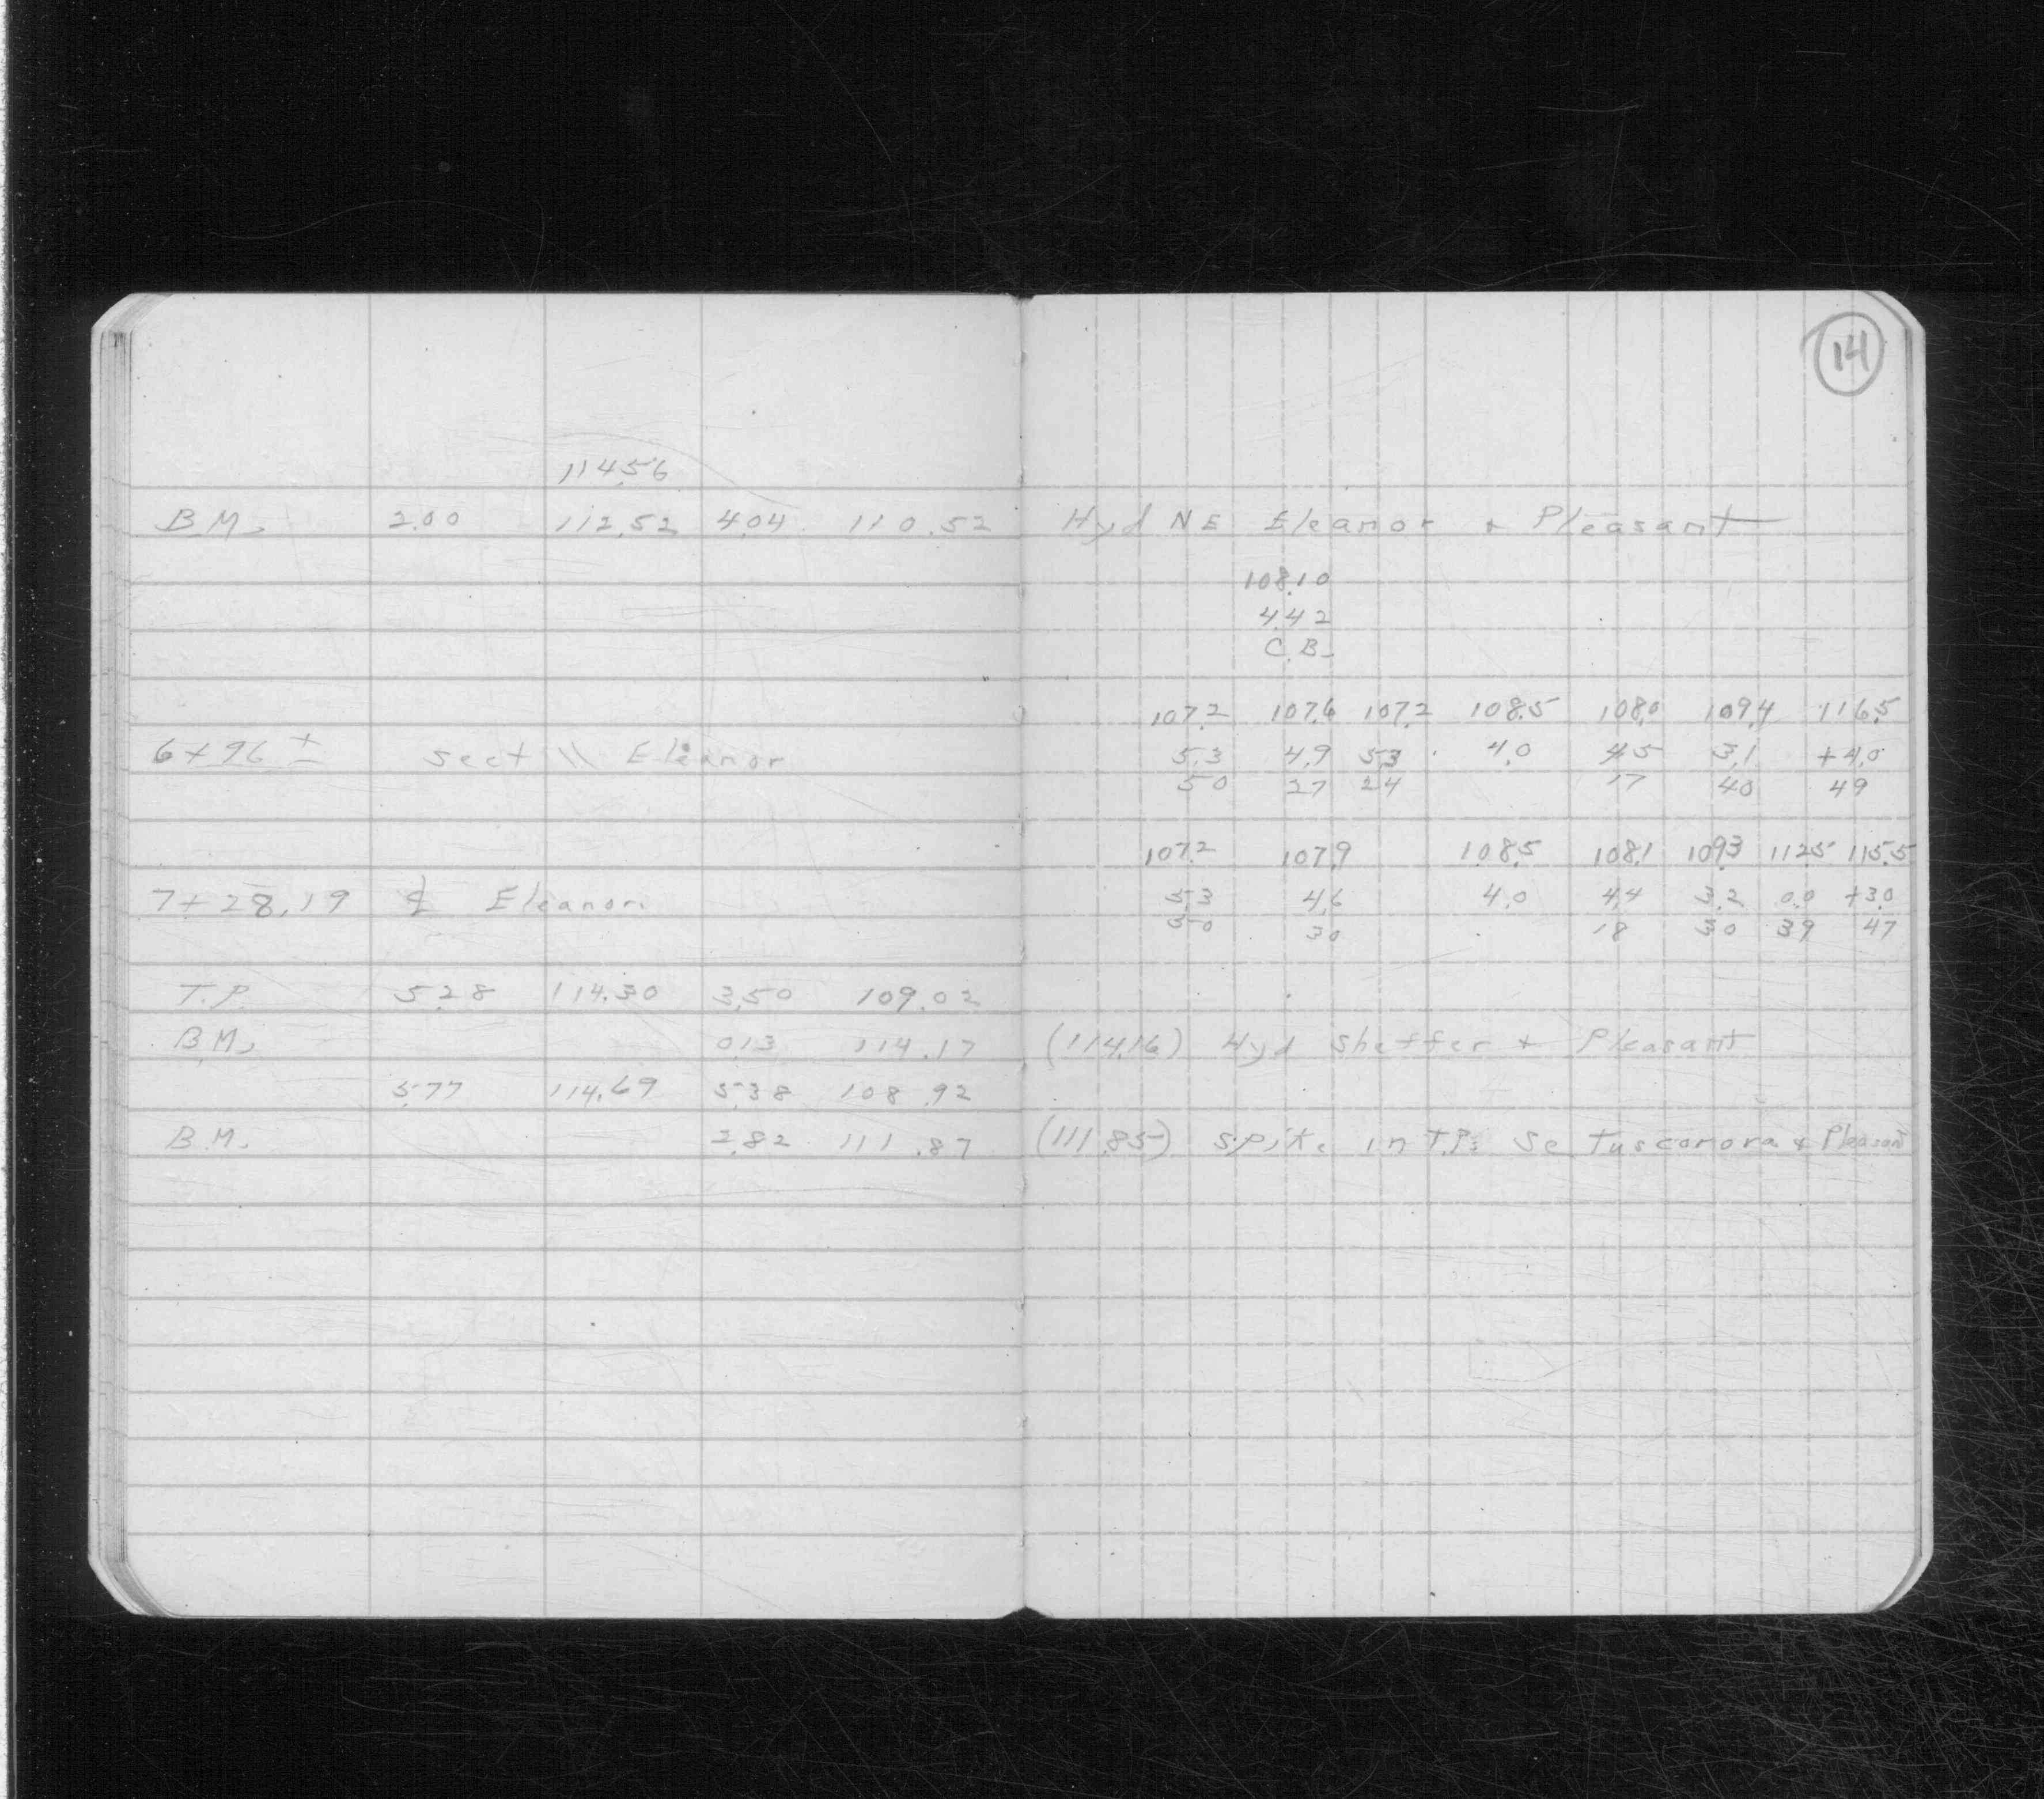 14
114.56
B.M. 2.00 112.52 4.04 110.52 Hyd NE Eleanor + Pleasant
108.10
4.42
C.B.
107.2 107.6 107.2 108.5 108.0 109.4 116.5
6+96 ± Sect \\ Eleanor 5.3 4.9 5.3 4.0 4.5 3.1 +4.0
50 27 24 17 40 49
107.2 107.9 108.5 108.1 109.3 112.5 115.5
7+28.19 ℄ Eleanor. 5.3 4.6 4.0 4.4 3.2 0.0 +3.0
50 30 18 30 39 47
T.P. 5.28 114.30 3.50 109.02
B.M. 0.13 114.17 (114.16) Hyd Sheffer + Pleasant
5.77 114.69 5.38 108.92
B.M. 2.82 111.87 (111.85) Spike in T.P. Se Tuscorora + Pleasant